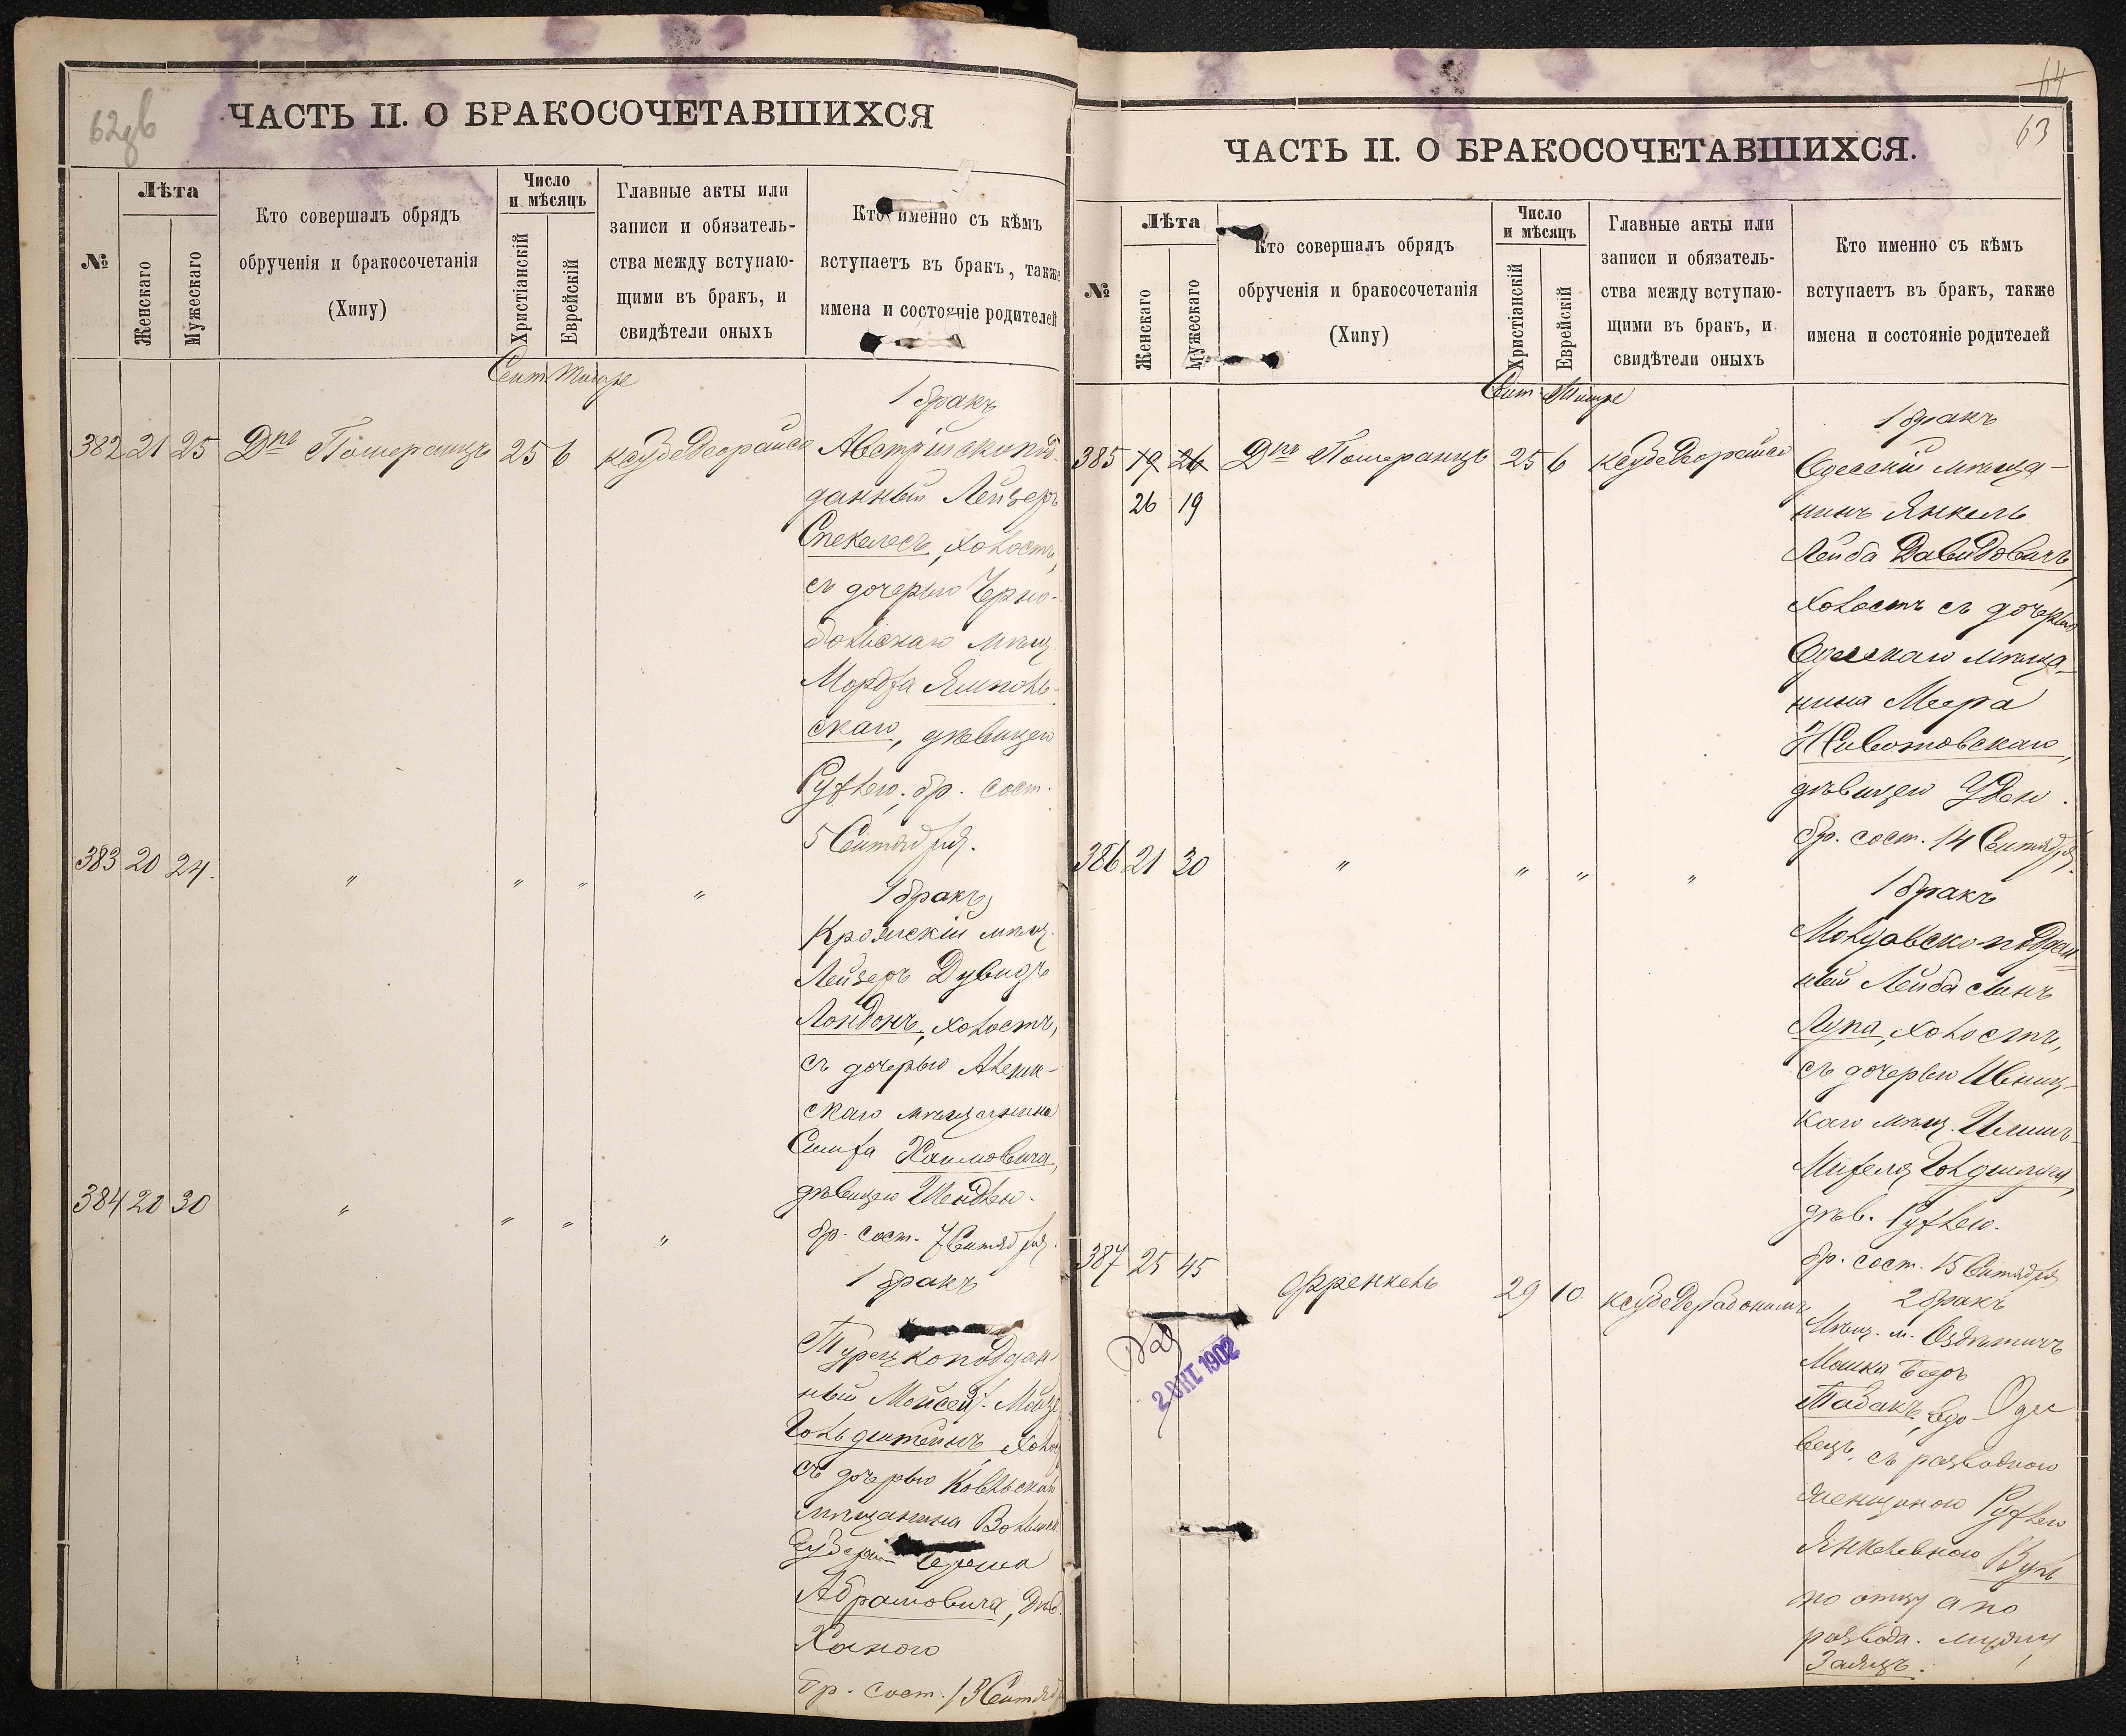 62об
ЧАСТЬ II. О БРАКОСОЧЕТАВШИХСЯ
№
Лѣта
Женскаго
Мужескаго
Кто совершалъ обрядъ
обрученія и бракосочетанія
(Хипу)
Число
и мѣсяцъ
Христіанскій
Еврейскій
Главные акты или
записи и обязатель-
ства между вступаю-
щими въ бракъ, и
свидѣтели оныхъ
Кто именно съ кѣмъ
вступаетъ въ бракъ, также
имена и состояніе родителей
Сент. Тишре
1 бракъ
382 21 25 Дпъ Померанцъ 25 6 ксубе Деорайсо Австрійскопод-
данный Лейзеръ
Спекелесъ, холостъ,
съ дочерью Черно-
больскаго мѣщ.
Мордха Ямполь-
скаго, дѣвицею
Рухлею. бр. сост.
5 Сентября.
383 20 24. " " " "
1 бракъ
Крожскій мѣщ.
Лейзеръ Дувидъ
Лондонъ, холостъ,
съ дочерью Алешк-
скаго мѣщанина
Симха Хаимовича,
дѣвицею Шейдлею.
бр. сост. 7 Сентября.
384 20 30 " " " "
1 бракъ
Турецкоподдан-
ный Мойсей
Гольдштейнъ холос
съ дочерью Ковельскаго
мѣщанина Волынск.
Губерніи Герша
Абрамовича, дѣв.
Ханою
бр. сост. 13 Сентяб
64
63
ЧАСТЬ II. О БРАКОСОЧЕТАВШИХСЯ.
№
Лѣта
Женскаго
Мужескаго
Кто совершалъ обрядъ
обрученія и бракосочетанія
(Хипу)
Число
и мѣсяцъ
Христіанскій
Еврейскій
Главные акты или
записи и обязатель-
ства между вступаю-
щими въ бракъ, и
свидѣтели оныхъ
Кто именно съ кѣмъ
вступаетъ въ бракъ, также
имена и состояніе родителей
Сент. Тишре
1 бракъ
385 19 26 Дпъ Померанцъ 25 6 ксубе Деорайсо Одесскій мѣща-
26 19
нинъ Янкель
Лейба Давидовичъ,
холостъ съ дочерью
Одесскаго мѣща-
нина Меера
Животовскаго,
дѣвицею Удею.
бр. сост. 14 Сентября.
386 21 30 " " " "
1 бракъ
Молдавскоподдан-
ный Лейба сынъ
Лупа, холостъ,
съ дочерью Ивниц-
каго мѣщ.
дѣв. Рухлею.
бр. сост. 15 Сентября
387 25 45 Френкель 29 10 ксубе Дерабонимъ
2 бракъ
Мѣщ. м. Оздютичъ
Мошко Беръ
Табакъ, вдо-
вецъ, съ разводною
женщиною Рухлею
Янкелевною
по отцу а по
развед. мужу
Заяцъ.
2 ОКТ 1902